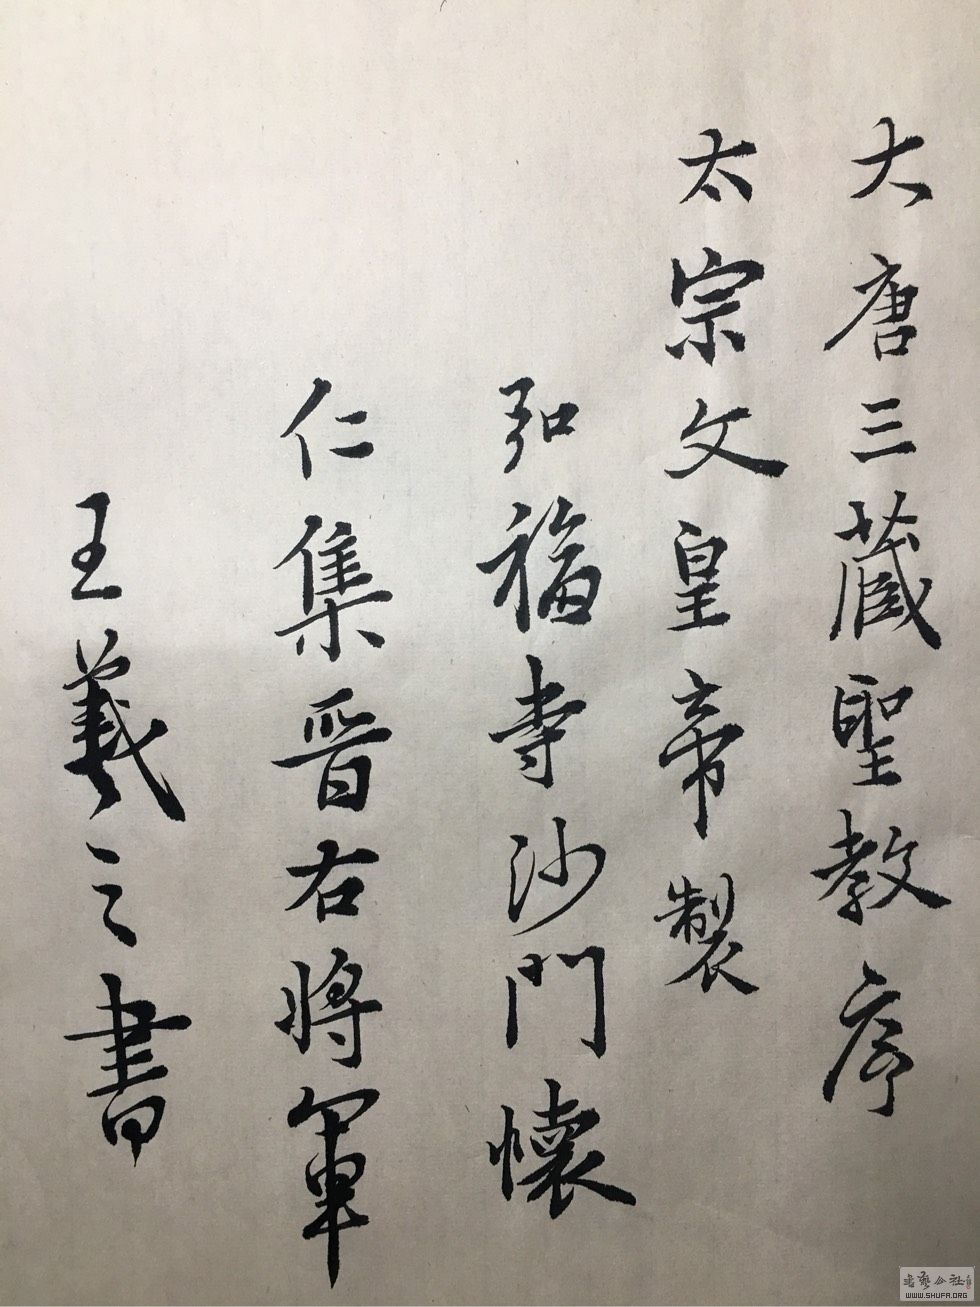 大唐三藏聖教序
太宗文皇帝製
弘福寺沙門懷
仁集晉右將軍
王羲之書
书艺公社
WWW.SHUFA.ORG